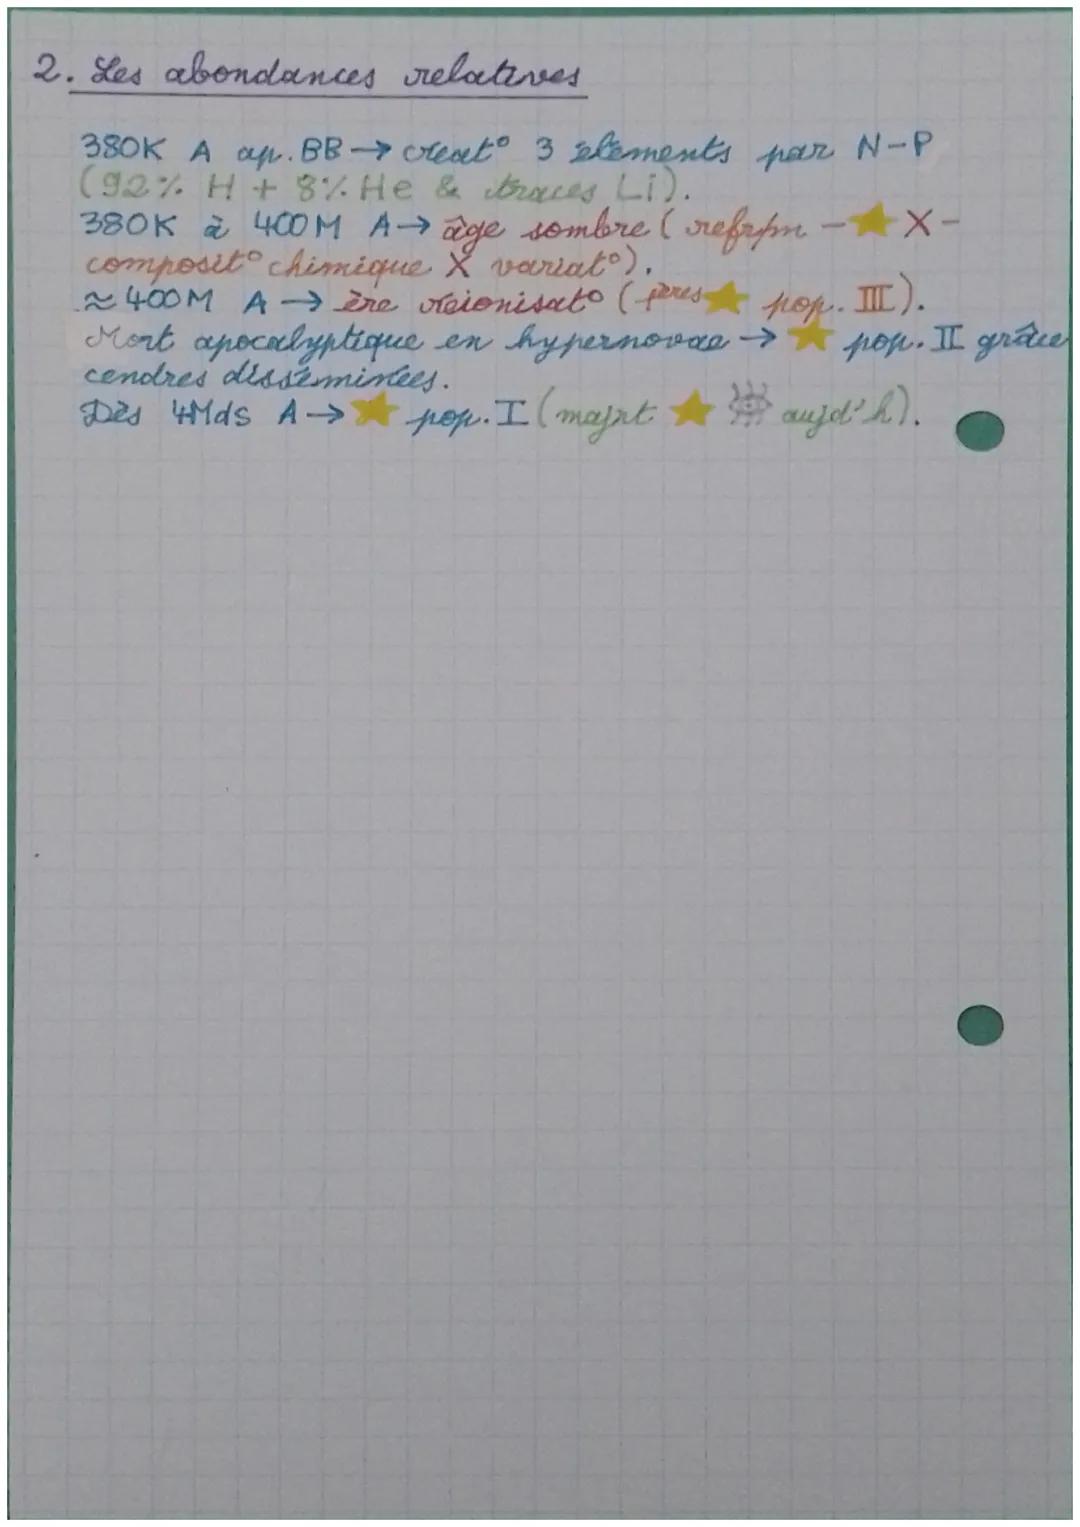 2. Les abondances relatives
380K A ap. BB → créat° 3 élements par N-P
(92% H + 8% He & traces Li).
380K à 400M A → âge sombre ( refrpm - ⭐ X -
composit° chimique X variat°).
≈ 400M A → ère réionisat° ( pères ⭐ pop. III).
Mort apocalyptique en hypernovae → ⭐ pop. II grâce
cendres disséminées.
Dès 4Mds A → ⭐ pop. I (majrt ⭐ 👁 aujd'h).